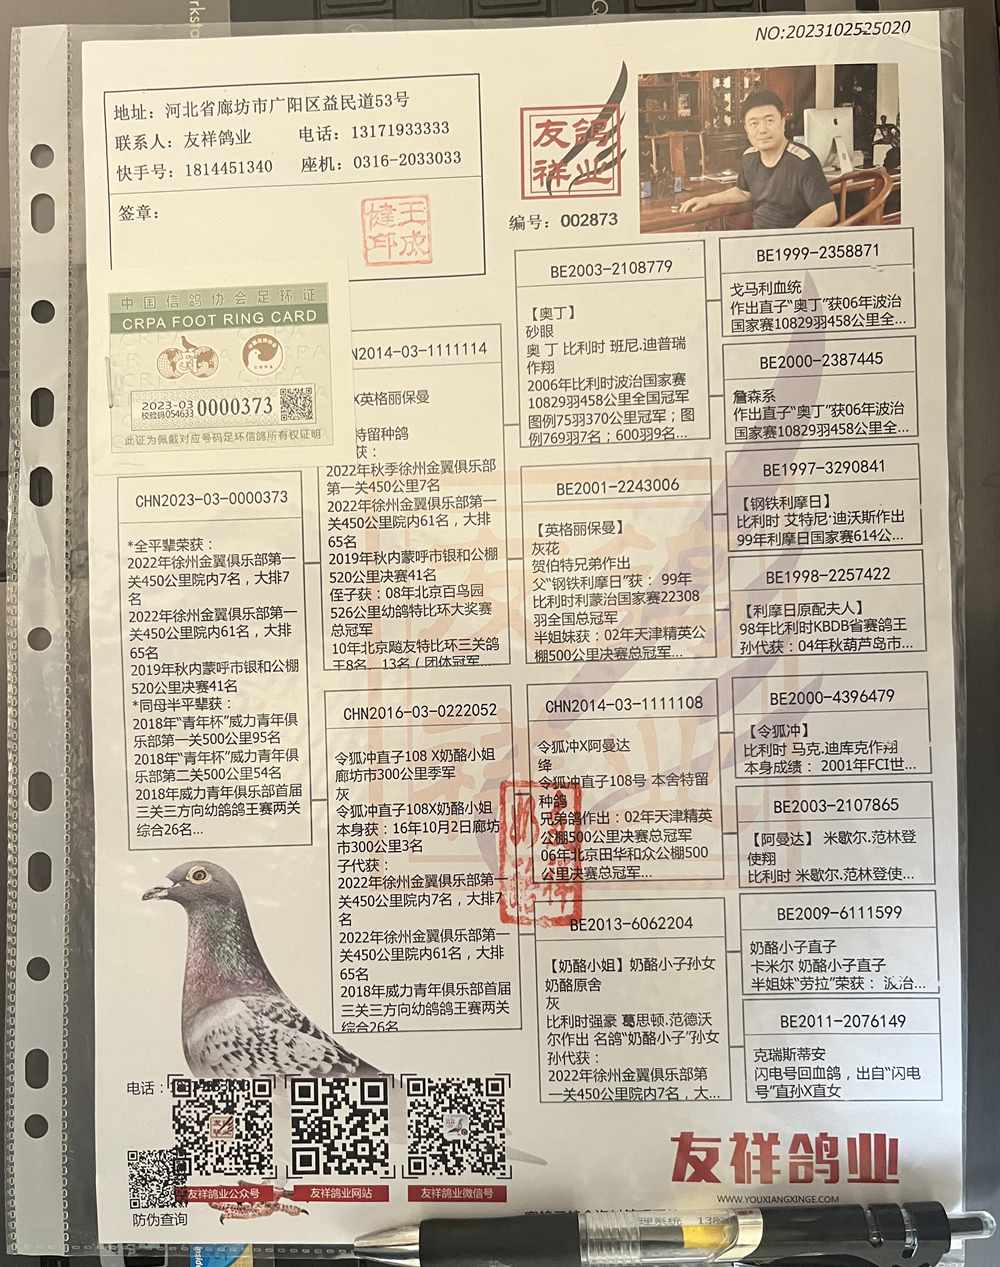 NO:2023102525020
地址：河北省廊坊市广阳区益民道53号
联系人：友祥鸽业 电话：13171933333
快手号：1814451340 座机：0316-2033033
签章：
友祥鸽业
编号：002873
中国信鸽协会足环证
CRPA FOOT RING CARD
2023-03
校验码054633
0000373
此证为佩戴对应号码足环信鸽所有权证明
CHN2023-03-0000373
*全平辈荣获：
2022年徐州金翼俱乐部第一
关450公里院内7名，大排7
名
2022年徐州金翼俱乐部第一
关450公里院内61名，大排
65名
2019年秋内蒙呼市银和公棚
520公里决赛41名
*同母半平辈获：
2018年“青年杯”威力青年俱
乐部第一关500公里95名
2018年“青年杯”威力青年俱
乐部第二关500公里54名
2018年威力青年俱乐部首届
三关三方向幼鸽鸽王赛两关
综合26名...
N2014-03-1111114
X英格丽保曼
特留种鸽
获：
2022年秋季徐州金翼俱乐部
第一关450公里7名
2022年徐州金翼俱乐部第一
关450公里院内61名，大排
65名
2019年秋内蒙呼市银和公棚
520公里决赛41名
侄子获：08年北京百鸟园
526公里幼鸽特比环大奖赛
总冠军
10年北京飚友特比环三关鸽
王8名、13名（团体冠军
CHN2016-03-0222052
令狐冲直子108 X奶酪小姐
廊坊市300公里季军
灰
令狐冲直子108X奶酪小姐
本身获：16年10月2日廊坊
市300公里3名
子代获：
2022年徐州金翼俱乐部第一
关450公里院内7名，大排7
名
2022年徐州金翼俱乐部第一
关450公里院内61名，大排
65名
2018年威力青年俱乐部首届
三关三方向幼鸽鸽王赛两关
综合26名
BE2003-2108779
【奥丁】
砂眼
奥丁 比利时 班尼.迪普瑞
作翔
2006年比利时波治国家赛
10829羽458公里全国冠军
图例75羽370公里冠军；图
例769羽7名；600羽9名...
BE2001-2243006
【英格丽保曼】
灰花
贺伯特兄弟作出
父“钢铁利摩日”获： 99年
比利时利蒙治国家赛22308
羽全国总冠军
半姐妹获：02年天津精英公
棚500公里决赛总冠军...
CHN2014-03-1111108
令狐冲X阿曼达
绛
令狐冲直子108号 本舍特留
种鸽
兄弟鸽作出：02年天津精英
公棚500公里决赛总冠军
06年北京田华和众公棚500
公里决赛总冠军...
BE2013-6062204
【奶酪小姐】奶酪小子孙女
奶酪原舍
灰
比利时强豪 葛思顿.范德沃
尔作出 名鸽“奶酪小子”孙女
孙代获：
2022年徐州金翼俱乐部第
一关450公里院内7名，大...
BE1999-2358871
戈马利血统
作出直子“奥丁”获06年波治
国家赛10829羽458公里全...
BE2000-2387445
詹森系
作出直子“奥丁”获06年波治
国家赛10829羽458公里全...
BE1997-3290841
【钢铁利摩日】
比利时 艾特尼·迪沃斯作出
99年利摩日国家赛614公...
BE1998-2257422
【利摩日原配夫人】
98年比利时KBDB省赛鸽王
孙代获：04年秋葫芦岛市...
BE2000-4396479
【令狐冲】
比利时 马克.迪库克作翔
本身成绩： 2001年FCI世...
BE2003-2107865
【阿曼达】 米歇尔.范林登
使翔
比利时 米歇尔.范林登使...
BE2009-6111599
奶酪小子直子
卡米尔 奶酪小子直子
半姐妹“劳拉”荣获： 波治...
BE2011-2076149
克瑞斯蒂安
闪电号回血鸽，出自“闪电
号”直孙X直女
电话：
友祥鸽业公众号 友祥鸽业网站 友祥鸽业微信号
防伪查询
友祥鸽业
WWW.YOUXIANGXINGE.COM